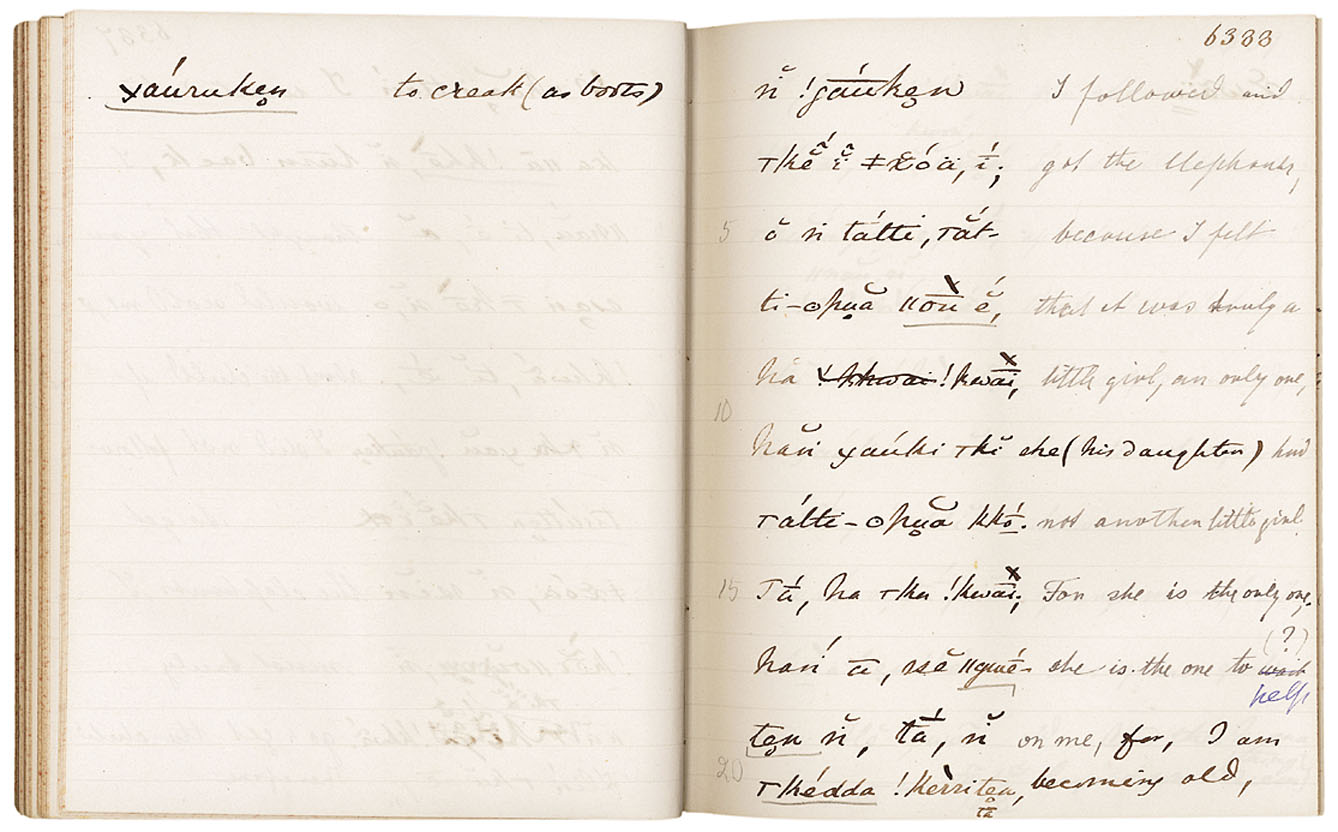 χáuruken̥ to creak (as boots)
6333
n̆ !gáuken̥ I followed and
ꞇké ĭ ǂχóä, í; got the Elephants,
5 ŏ n tátti, ꞇắt- because I felt
ti-ʘpu̥ă ǁōu ĕ́, that it was truly a
hā !kwāi, little girl, an only one,
10
hăn χaúki ꞇkĭ she (his daughter) had
ꞇátti-ʘpu̥ă kkó. not another little girl.
15 Tā́, ha ꞇke !kwāi, For she is the only one,
(?)
han ā, sĕ ǁgwḗ- she is the one to wait
help
ten̥ n̆, tā́, n̆ on me, for, I am
20 ꞇkédda !kèrriten, becoming old,
tā